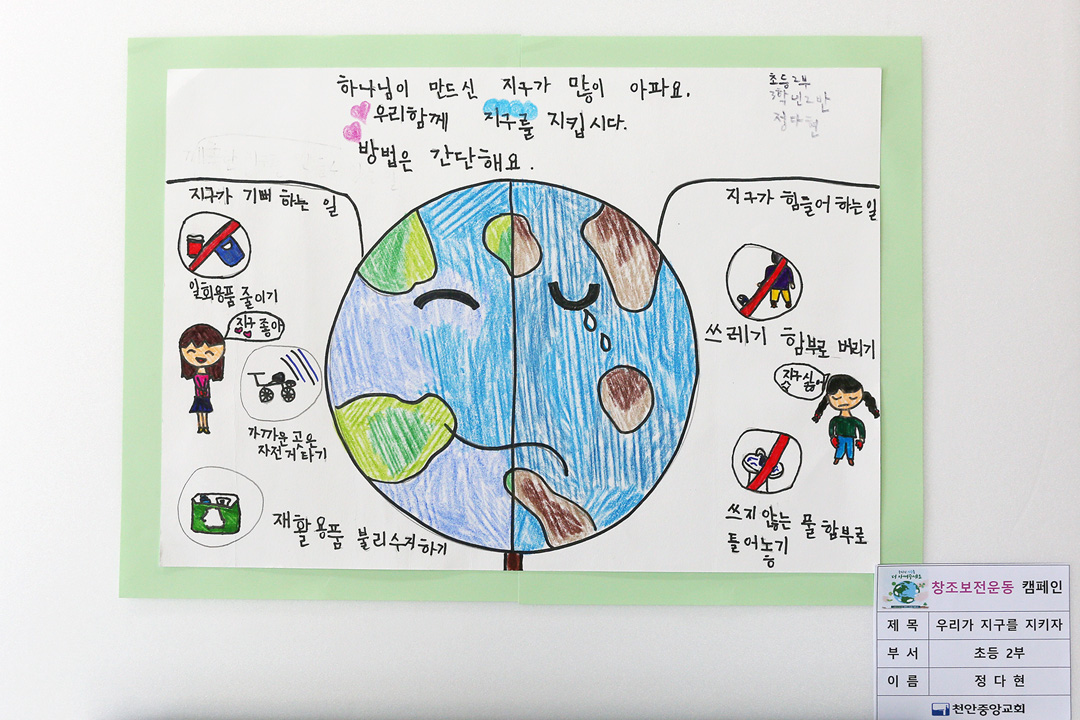 하나님이 만드신 지구가 많이 아파요.
우리함께 지구를 지킵시다.
방법은 간단해요.
초등2부
3학년2반
정다현
지구가 기뻐 하는 일
일회용품 줄이기
지구 좋아
가까운 곳은
자전거타기
재활용품 불리수거하기
지구가 힘들어 하는일
쓰레기 함부로 버리기
지구 싫어
쓰지 않는 물 함부로
틀어놓기
창조보전운동 캠페인
제 목 우리가 지구를 지키자
부 서 초등 2부
이 름 정 다 현
천안중앙교회